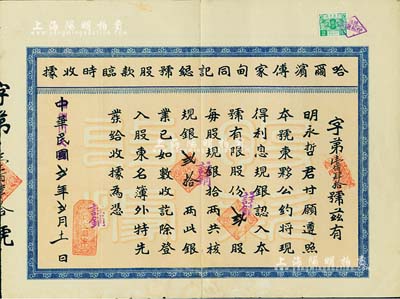 上海陽明拍賣
哈爾濱傅家甸同記總號股款臨時收據
字第壹 拾號茲有
明永哲君甘願遵照
本號東夥公約將現
得利息現銀認入本
號有限股份 貳 股
每股現銀拾兩共核
現銀 貳拾 兩此銀
業已如數收訖除登
入股東名簿外特先
發給收據為憑
中華民國 年 月十一日
字第
號
上海陽明拍賣